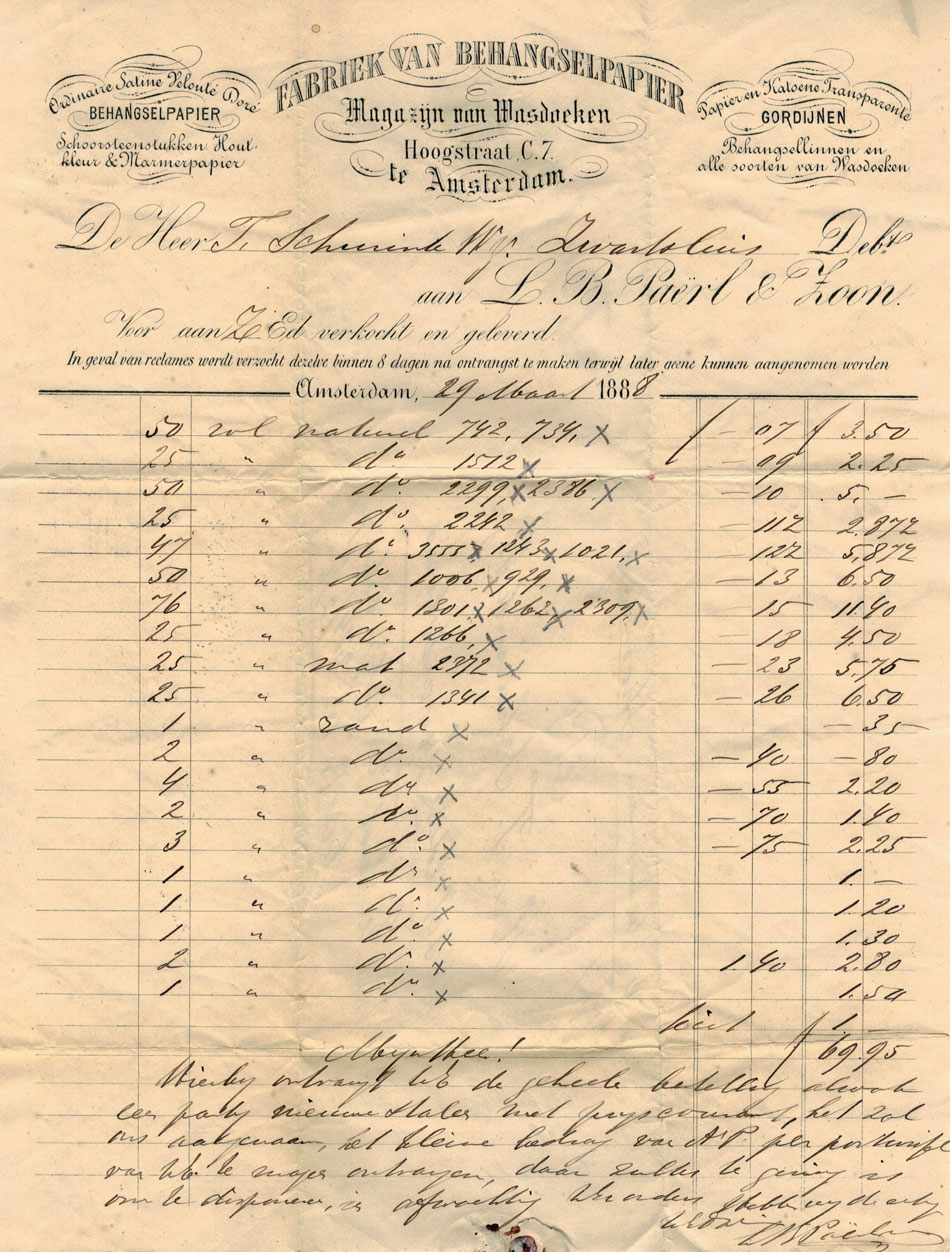 FABRIEK VAN BEHANGSELPAPIER
Magazijn van Wasdoeken
Hoogstraat, C. 7.
te Amsterdam.
Ordinaire Satine Velouté Doré
BEHANGSELPAPIER
Schoorsteenstukken. Hout-
kleur & Marmerpapier
Papier en Katoene Transparente
GORDIJNEN
Behangsellinnen en
alle soorten van Wasdoeken
De Heer T. Schuurink Wzn. Zwartsluis Debt.
aan L. B. Paërl & Zoon.
Voor aan Z Ed verkocht en geleverd.
In geval van reclames wordt verzocht dezelve binnen 8 dagen na ontvangst te maken terwijl later geene kunnen aangenomen worden
Amsterdam, 29 Maart 1888
50 rol naturel 742, 734, x f - 07 f 3.50
25 " do. 1512 x - 09 2.25
50 " do. 2299, x 2386, x - 10 5. -
25 " do. 2242 x - 11½ 2.87½
47 " do. 3555 x 1243 x 1021, x - 12½ 5.87½
50 " do. 1006, x 929, x - 13 6.50
76 " do. 1301, x 1262, x 2309, x 15 11.40
25 " do. 1266, x 18 4.50
25 " mat 2372 x - 23 5.75
25 " do. 1341 x - 26 6.50
1 " rand x - 35
2 " do. x - 40 - 80
4 " do x - 55 2.20
2 " do. x - 70 1.40
3 " do. x - 75 2.25
1 " do x 1. -
1 " do. x 1.20
1 " do. x 1.30
2 " do. x 1.40 2.80
1 " do. x 1.50
kist 1. -
f 69.95
Mijnheer!
Hierbij ontvangt UE de geheele bestelling alsook
een partij nieuwe stalen met pryscourant, het zal
ons aangenaam, het kleine bedrag van per postwissel
van UE te mogen ontvangen, daar zulks te gering is
om te disponeren, in afwachting Uw orders hebben wij de eer
L B Paërl